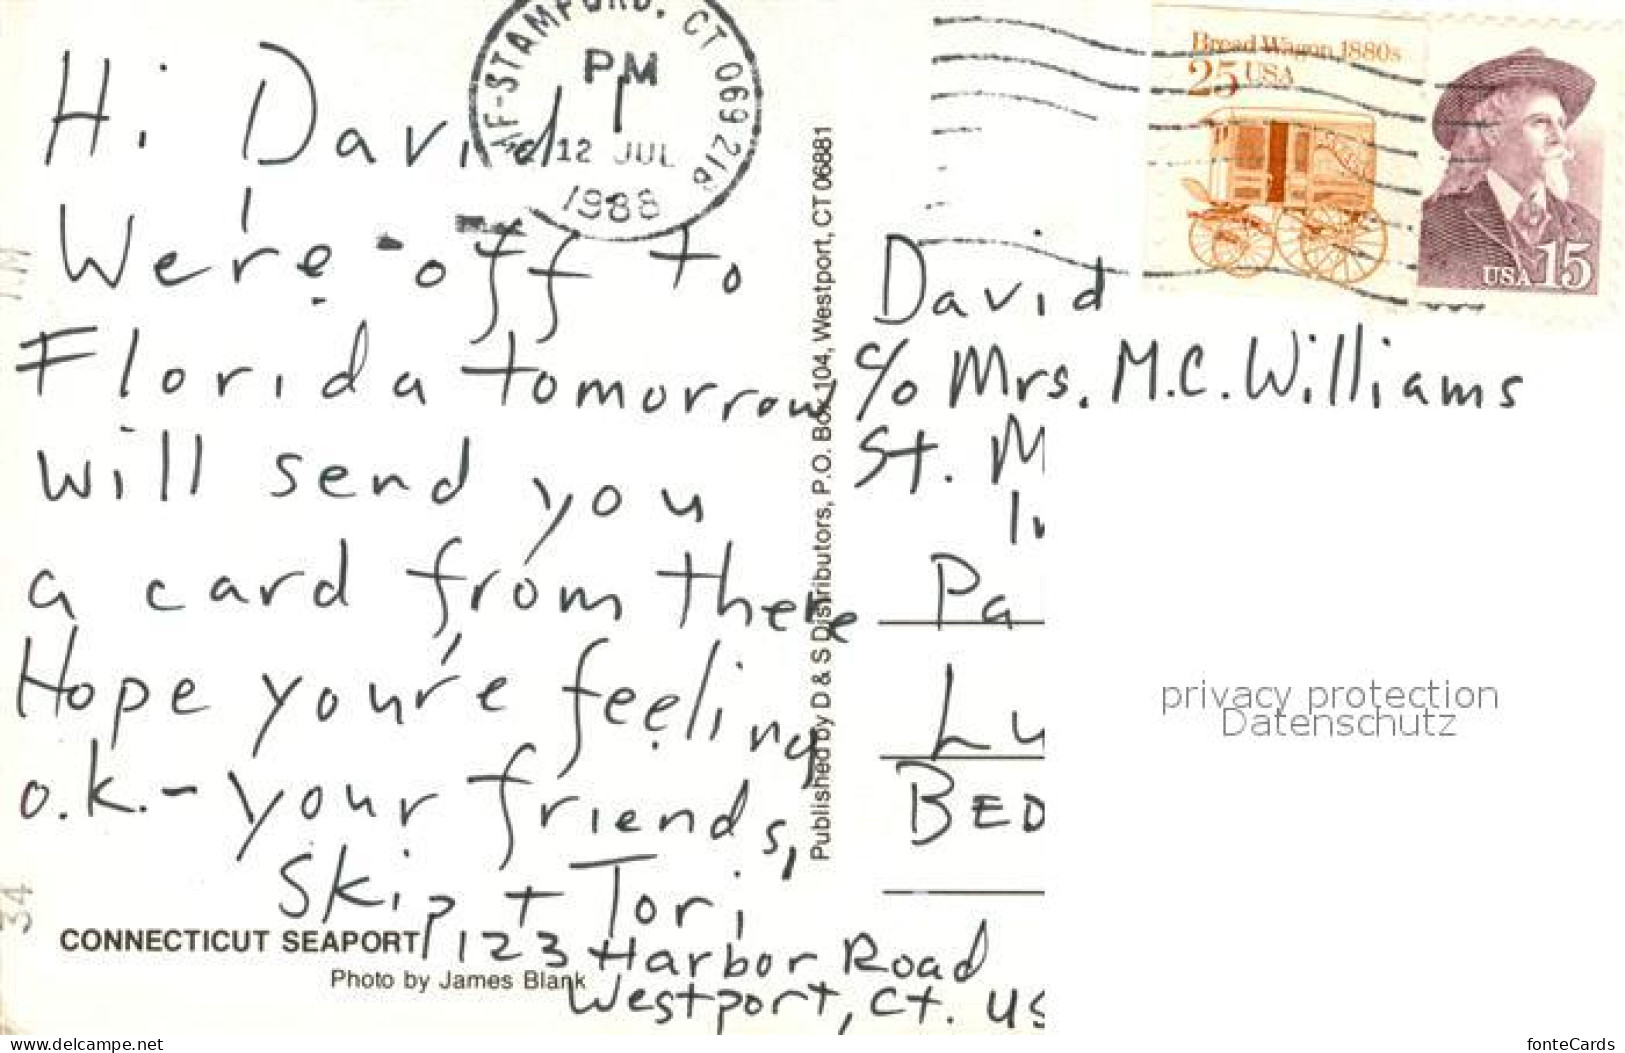 Hi David
We're off to
Florida tomorrow
will send you
a card from there
Hope you're feeling
o.k. - your friends,
Skip + Tori
123 Harbor Road
Westport, Ct. US
CONNECTICUT SEAPORT
Photo by James Blank
Published by D & S Distributors, P.O. Box 104, Westport, CT 06881
STAMFORD, CT 069 218
PM
12 JUL
1988
Bread Wagon 1880s
25 USA
USA 15
David
c/o Mrs. M.C. Williams
St. M
Pa
Lu
BED
privacy protection
Datenschutz
34
www.delcampe.net
fonteCards